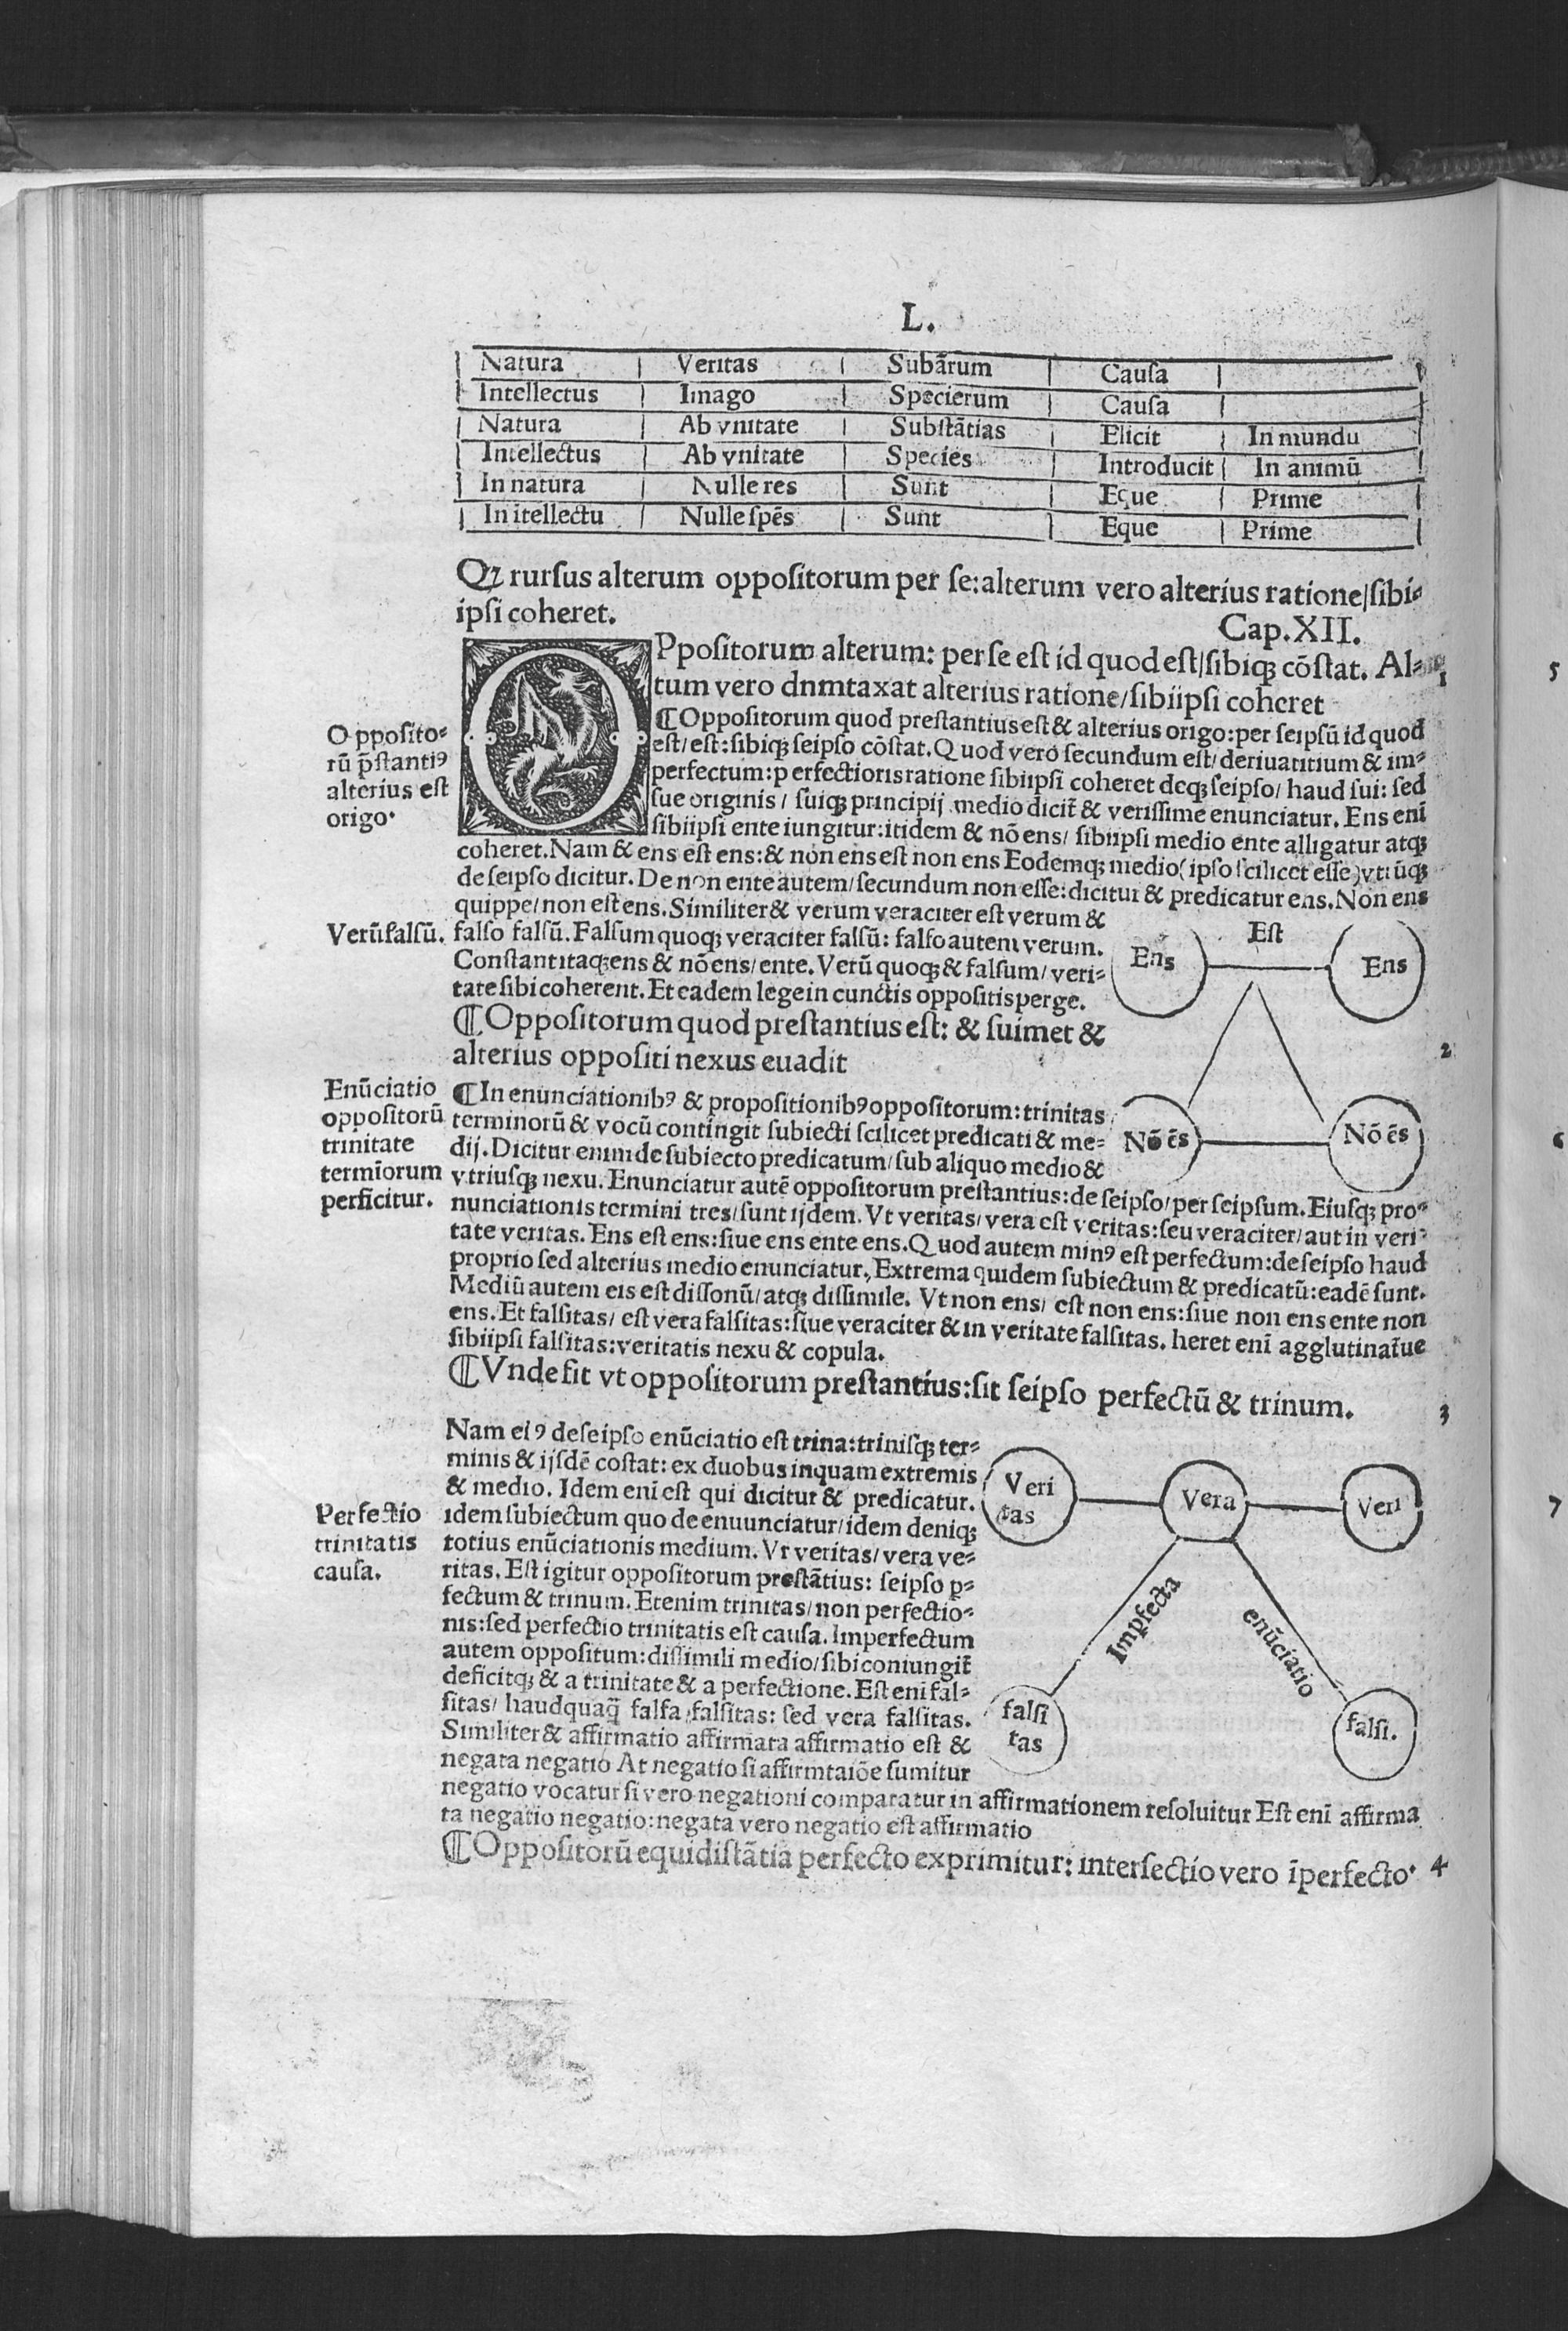 L.
Natura | Veritas | Subãrum | Cauſa |
Intellectus | Imago | Specierum | Cauſa |
Natura | Ab vnitate | Subſtãtias | Elicit | In mundu
Intellectus | Ab vnitate | Species | Introducit | In animũ
In natura | Nulle res | Sunt | Eque | Prime
In ītellectu | Nulle ſpẽs | Sunt | Eque | Prime
Qꝫ rurſus alterum oppoſitorum per ſe: alterum vero alterius ratione/ſibi⸗
ipſi coheret.
Cap.XII.
OPpoſitorum alterum: per ſe eſt id quod eſt/ſibiqꝫ cõſtat. Al⸗ 1
tum vero dnmtaxat alterius ratione/ſibiipſi coheret
¶Oppoſitorum quod preſtantius eſt & alterius origo: per ſeipſũ id quod
eſt/ eſt: ſibiqꝫ ſeipſo cõſtat. Quod vero ſecundum eſt/ deriuatitium & im⸗
perfectum: perfectioris ratione ſibiipſi coheret deqꝫ ſeipſo/ haud ſui: ſed
ſue originis/ ſuiqꝫ principij medio dicit̃ & veriſſime enunciatur. Ens enī
ſibiipſi ente iungitur: itidem & nõ ens/ ſibiipſi medio ente alligatur atqꝫ
coheret. Nam & ens eſt ens: & non ens eſt non ens Eodemqꝫ medio (ipſo ſcilicet eſſe) vtrũqꝫ
de ſeipſo dicitur. De non ente autem/ ſecundum non eſſe: dicitur & predicatur ens. Non ens
quippe/ non eſt ens. Similiter & verum veraciter eſt verum &
falſo falſũ. Falſum quoqꝫ veraciter falſũ: falſo autem verum.
Conſtant itaqꝫ ens & nõ ens/ ente. Verũ quoqꝫ & falſum/ veri⸗
tate ſibi coherent. Et eadem lege in cunctis oppoſitis perge.
Oppoſito⸗
rũ p̃ſtantiꝰ
alterius eſt
origo.
Verũ falſũ.
Ens Eſt Ens
Nõ ẽs Nõ ẽs
¶Oppoſitorum quod preſtantius eſt: & ſuimet & 2
alterius oppoſiti nexus euadit
¶In enunciationibꝰ & propoſitionibꝰ oppoſitorum: trinitas
terminorũ & vocũ contingit ſubiecti ſcilicet predicati & me⸗
dij. Dicitur enim de ſubiecto predicatum/ ſub aliquo medio &
vtriuſqꝫ nexu. Enunciatur autẽ oppoſitorum preſtantius: de ſeipſo/ per ſeipſum. Eiuſqꝫ pro⸗
nunciationis termini tres/ ſunt ijdem. Vt veritas/ vera eſt veritas: ſeu veraciter/ aut in veri⸗
tate veritas. Ens eſt ens: ſiue ens ente ens. Quod autem minꝰ eſt perfectum: de ſeipſo haud
proprio ſed alterius medio enunciatur. Extrema quidem ſubiectum & predicatũ: eadẽ ſunt.
Mediũ autem eis eſt diſſonũ/ atqꝫ diſſimile. Vt non ens/ eſt non ens: ſiue non ens ente non
ens. Et falſitas/ eſt vera falſitas: ſiue veraciter & in veritate falſitas. heret enī agglutinat̃ue
ſibiipſi falſitas: veritatis nexu & copula.
Enũciatio
oppoſitorũ
trinitate
termīorum
perficitur.
¶Vnde fit vt oppoſitorum preſtantius: ſit ſeipſo perfectũ & trinum. 3
Nam eiꝰ de ſeipſo enũciatio eſt trina: triniſqꝫ ter⸗
minis & ijſdẽ coſtat: ex duobus inquam extremis
& medio. Idem eni eſt qui dicitur & predicatur.
idem ſubiectum quo de enuunciatur/ idem deniqꝫ
totius enũciationis medium. Vt veritas/ vera ve⸗
ritas. Eſt igitur oppoſitorum preſtãtius: ſeipſo p⸗
fectum & trinum. Etenim trinitas/ non perfectio⸗
nis: ſed perfectio trinitatis eſt cauſa. Imperfectum
autem oppoſitum: diſſimili medio/ ſibi coniungit̃
deficitqꝫ & a trinitate & a perfectione. Eſt eni fal⸗
ſitas/ haudquaq̃ falſa falſitas: ſed vera falſitas.
Similiter & affirmatio affirmata affirmatio eſt &
negata negatio At negatio ſi affirmtaiõe ſumitur
negatio vocatur ſi vero negationi comparatur in affirmationem reſoluitur Eſt enī affirma
ta negatio negatio: negata vero negatio eſt affirmatio
Perfectio
trinitatis
cauſa.
Veri
tas
Vera
Veri
Impfecta
enũciatio
falſi
tas
falſi.
¶Oppoſitorũ equidiſtãtia perfecto exprimitur: interſectio vero īperfecto. 4
5
6
7